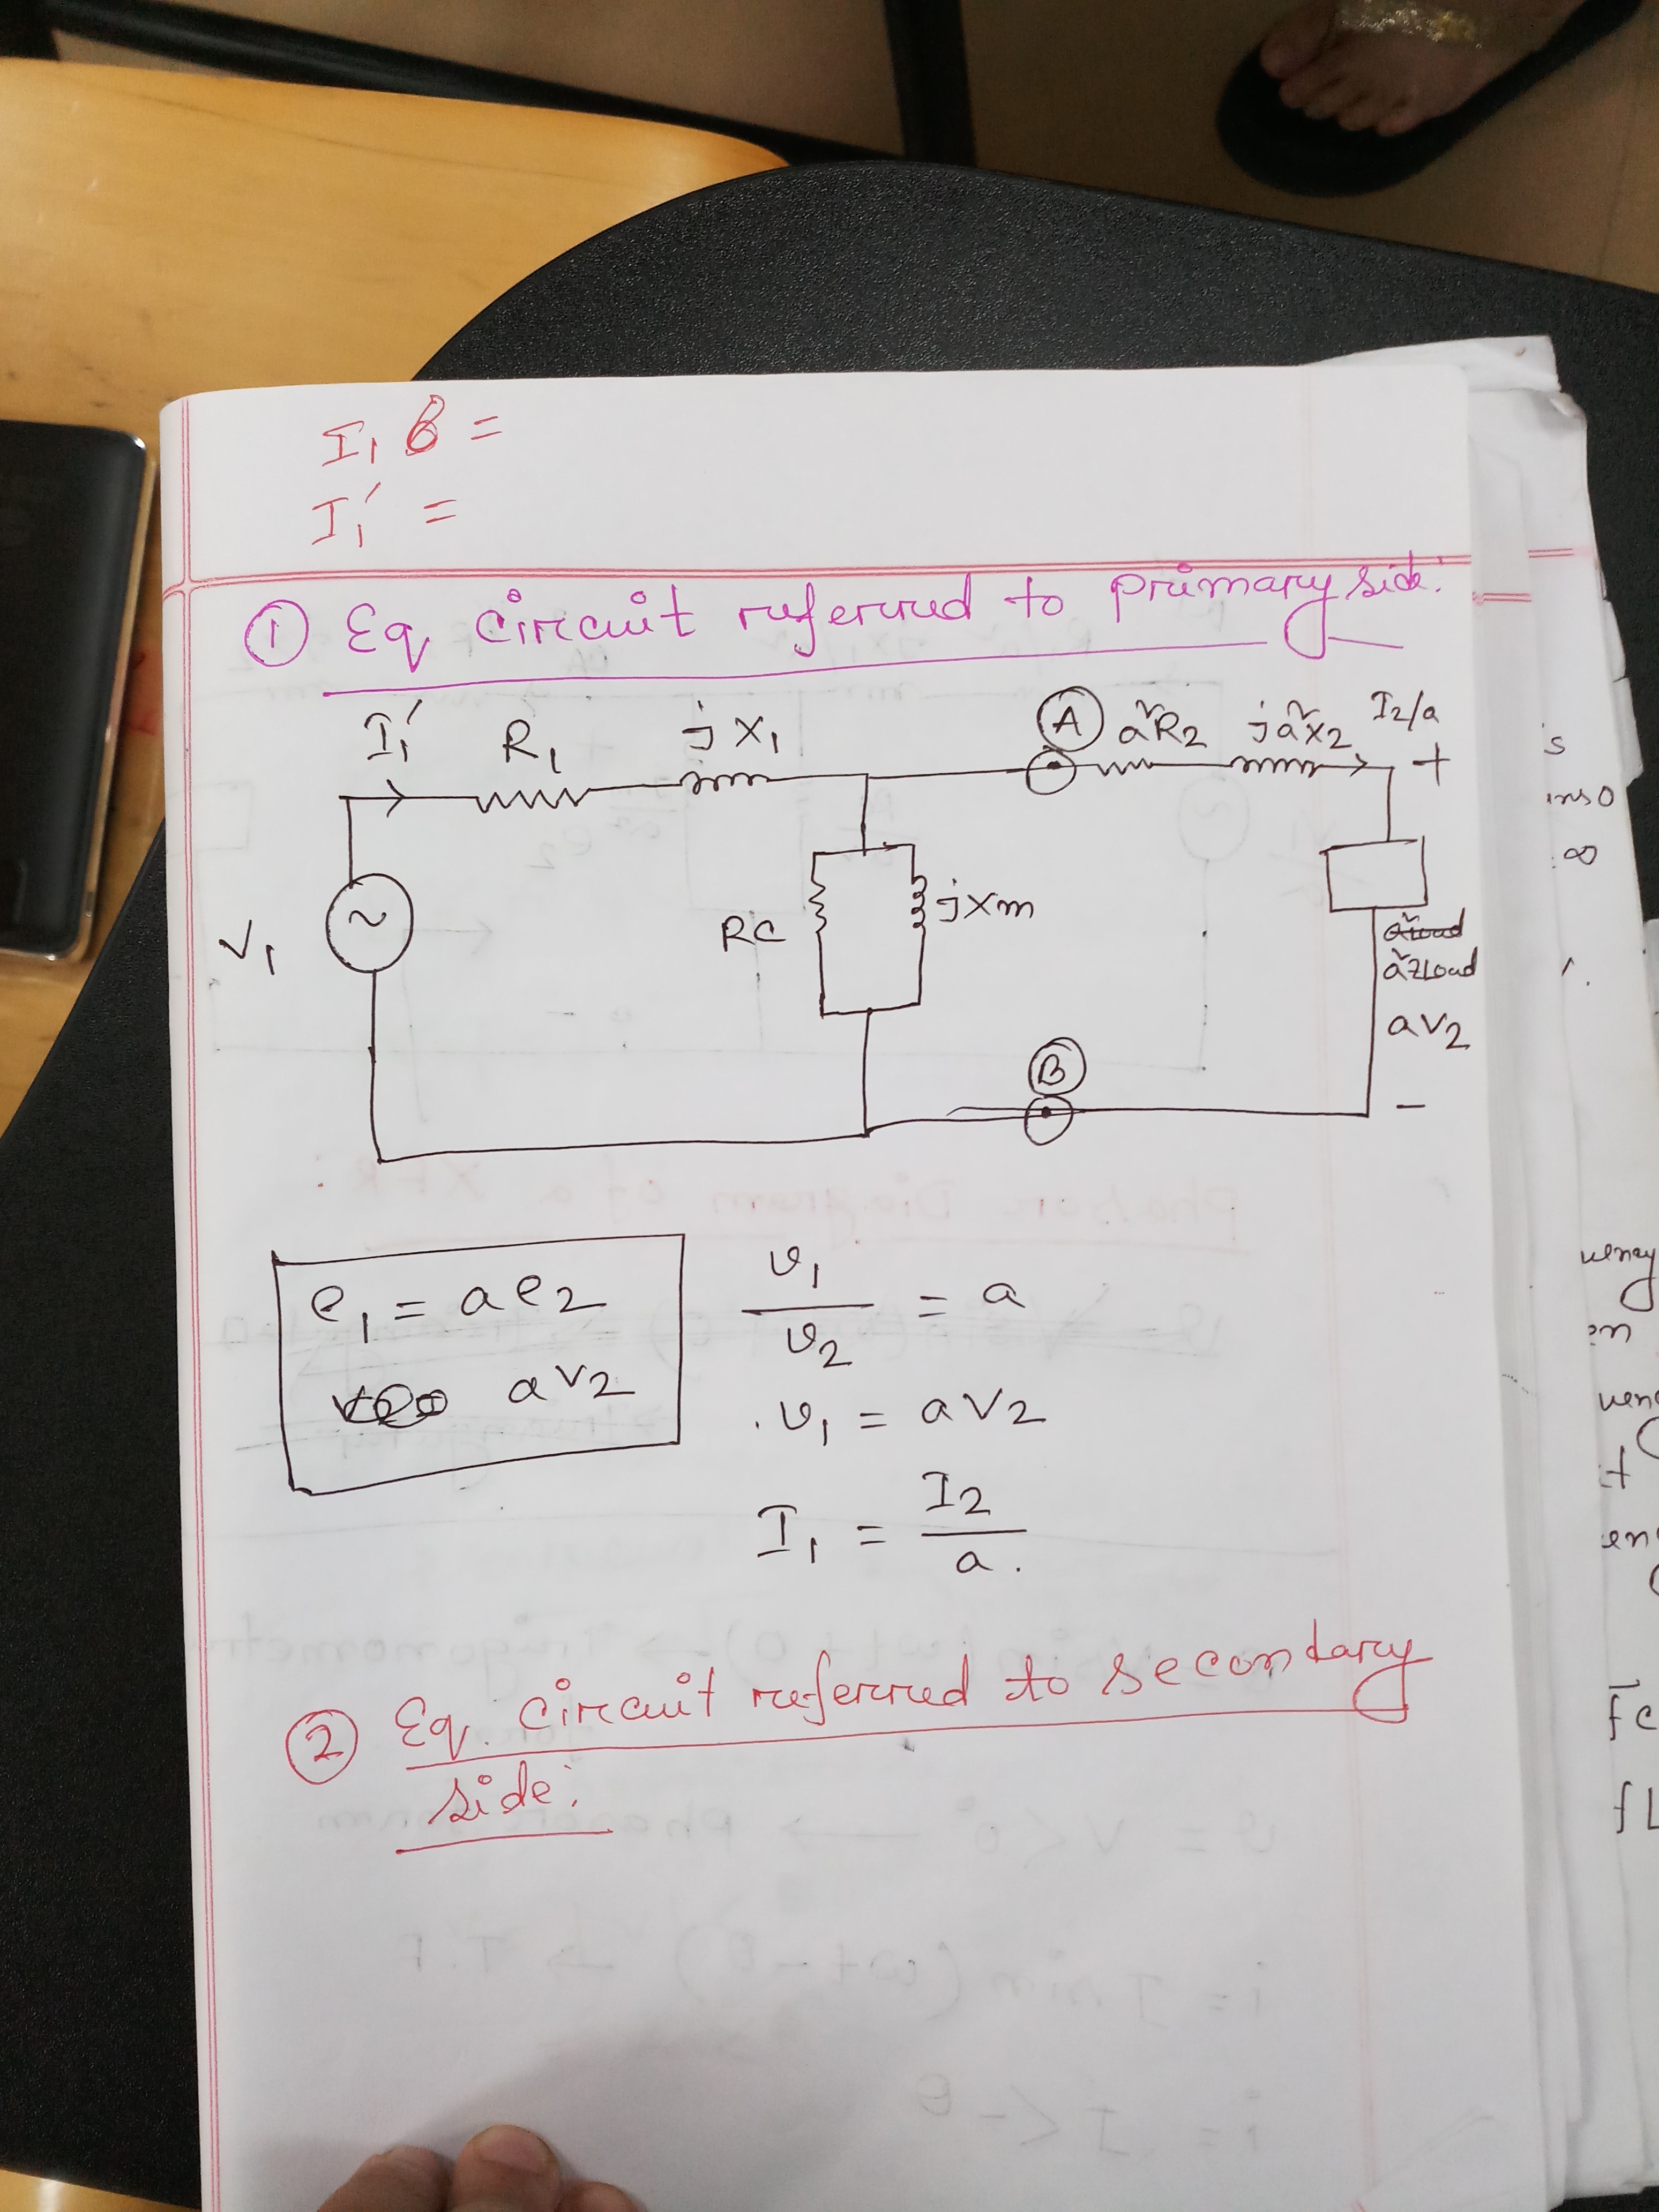 I₁ 6 =
I₁′ =
① Eq circuit referred to primary side:
I₁′ R₁ jX₁ Ⓐ a²R₂ ja²X₂ I₂/a
+
V₁ RC jXm
a²ZLoad
aV₂
Ⓑ
−
e₁ = ae₂
aV₂
v₁/v₂ = a
v₁ = aV₂
I₁ = I₂/a.
② Eq. circuit referred to secondary
side: